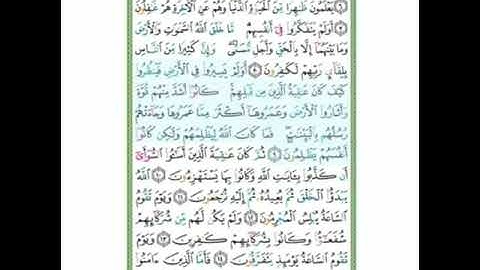 ٦ يَعْلَمُونَ ظَٰهِرًا مِّنَ ٱلْحَيَوٰةِ ٱلدُّنْيَا وَهُمْ عَنِ ٱلْءَاخِرَةِ هُمْ غَٰفِلُونَ
٧ أَوَلَمْ يَتَفَكَّرُوا۟ فِىٓ أَنفُسِهِم ۗ مَّا خَلَقَ ٱللَّهُ ٱلسَّمَٰوَٰتِ وَٱلْأَرْضَ
وَمَا بَيْنَهُمَآ إِلَّا بِٱلْحَقِّ وَأَجَلٍ مُّسَمًّى ۗ وَإِنَّ كَثِيرًا مِّنَ ٱلنَّاسِ
بِلِقَآئِ رَبِّهِمْ لَكَٰفِرُونَ ٨ أَوَلَمْ يَسِيرُوا۟ فِى ٱلْأَرْضِ فَيَنظُرُوا۟
كَيْفَ كَانَ عَٰقِبَةُ ٱلَّذِينَ مِن قَبْلِهِمْ ۚ كَانُوٓا۟ أَشَدَّ مِنْهُمْ قُوَّةً
وَأَثَارُوا۟ ٱلْأَرْضَ وَعَمَرُوهَآ أَكْثَرَ مِمَّا عَمَرُوهَا وَجَآءَتْهُمْ
رُسُلُهُم بِٱلْبَيِّنَٰتِ ۖ فَمَا كَانَ ٱللَّهُ لِيَظْلِمَهُمْ وَلَٰكِن كَانُوٓا۟
أَنفُسَهُمْ يَظْلِمُونَ ٩ ثُمَّ كَانَ عَٰقِبَةَ ٱلَّذِينَ أَسَٰٓـُٔوا۟ ٱلسُّوٓأَىٰٓ
أَن كَذَّبُوا۟ بِـَٔايَٰتِ ٱللَّهِ وَكَانُوا۟ بِهَا يَسْتَهْزِءُونَ ١٠ ٱللَّهُ
يَبْدَؤُا۟ ٱلْخَلْقَ ثُمَّ يُعِيدُهُۥ ثُمَّ إِلَيْهِ تُرْجَعُونَ ١١ وَيَوْمَ تَقُومُ
ٱلسَّاعَةُ يُبْلِسُ ٱلْمُجْرِمُونَ ١٢ وَلَمْ يَكُن لَّهُم مِّن شُرَكَآئِهِمْ
شُفَعَٰٓؤُا۟ وَكَانُوا۟ بِشُرَكَآئِهِمْ كَٰفِرِينَ ١٣ وَيَوْمَ
تَقُومُ ٱلسَّاعَةُ يَوْمَئِذٍ يَتَفَرَّقُونَ ١٤ فَأَمَّا ٱلَّذِينَ ءَامَنُوا۟